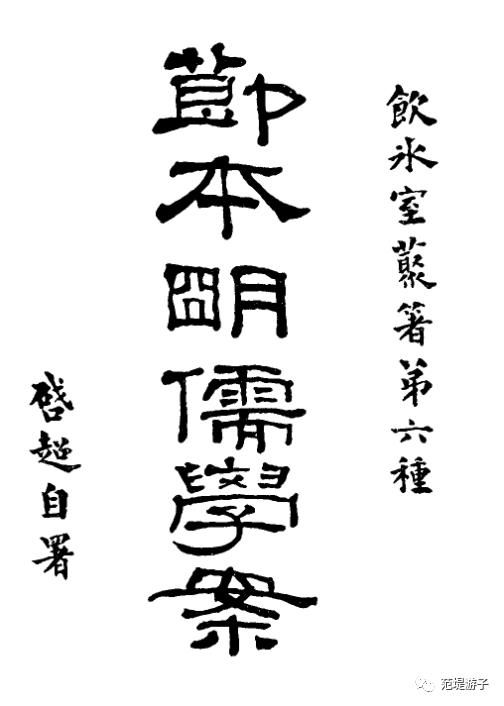 飲冰室叢箸第六種
節本明儒學案
啓超自署
范堤游子